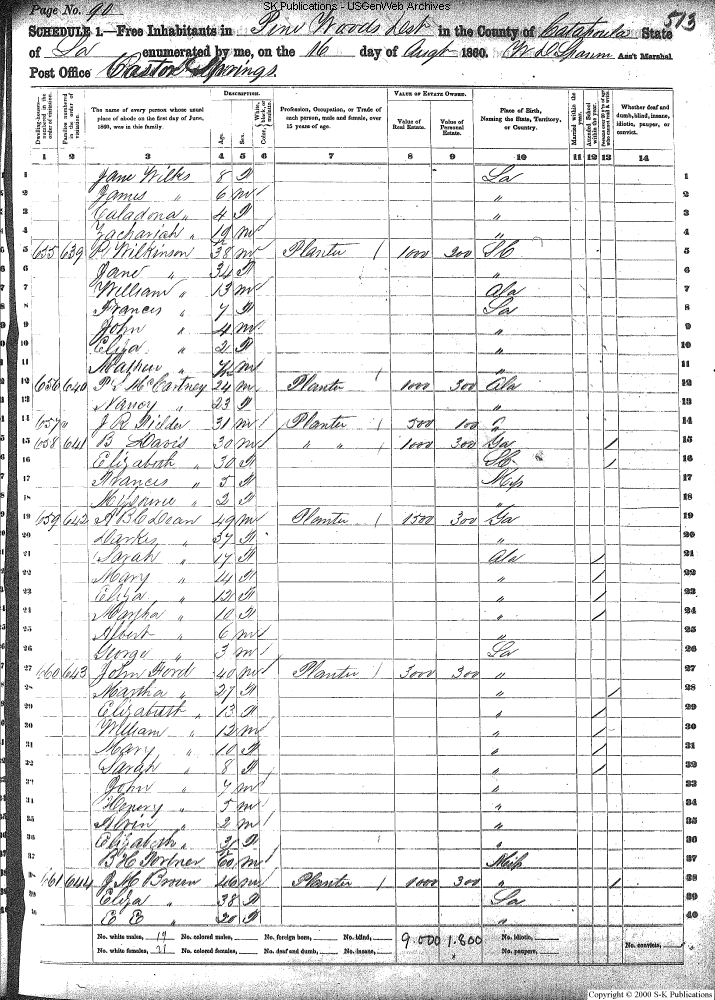 SK Publications - USGenWeb Archives
Page No. 90 513
SCHEDULE 1.—Free Inhabitants in Pine Woods Dist in the County of Catahoula State
of La enumerated by me, on the 16 day of Augt 1860. Ass't Marshal.
Post Office Castor Springs.
Dwelling-houses—numbered in the order of visitation.
Families numbered in the order of visitation.
The name of every person whose usual place of abode on the first day of June, 1860, was in this family.
DESCRIPTION.
Age. Sex. Color, White, black, or mulatto.
Profession, Occupation, or Trade of each person, male and female, over 15 years of age.
VALUE OF ESTATE OWNED.
Value of Real Estate. Value of Personal Estate.
Place of Birth, Naming the State, Territory, or Country.
Married within the year.
Attended School within the year.
Whether deaf and dumb, blind, insane, idiotic, pauper, or convict.
1 2 3 4 5 6 7 8 9 10 11 12 13 14
1 Jane Wilks 8 F La 1
2 James " 6 m " 2
3 Caladona " 4 F " 3
4 Zachariah " m " 4
5 655 639 P Wilkinson 38 m Planter 1000 200 SC 5
6 Jane " 34 F " 6
7 William " 13 m Ala 7
8 Francis " 7 F La 8
9 John " 4 m " 9
10 Eliza " 2 F " 10
11 Mathew " m " 11
12 656 640 McCartney 24 m Planter 1000 300 Ala 12
13 Nancy " 23 F " 13
14 657 " J R Fielder 31 m Planter 500 100 14
15 658 641 B Davis 30 m " " 1000 300 Ga / 15
16 Elizabeth " 30 F SC / 16
17 Francis " 5 F Miss 17
18 Missourie " 2 F " 18
19 659 642 A B C Dean 49 m Planter 1500 300 Ga 19
20 Darkis " 37 F " 20
21 Sarah " 17 F Ala / 21
22 Mary " 14 F " / 22
23 Eliza " 12 F " / 23
24 Martha " 10 F " / 24
25 Albert " 6 m " 25
26 George " 3 m La 26
27 660 643 John Ford 40 m Planter 3000 300 " 27
28 Martha " 27 F " / 28
29 Elizabeth " 13 F " / 29
30 William " 12 m " / 30
31 Mary " 10 F " / 31
32 Sarah " 8 F " / 32
John " 7 m "
34 Henery " 5 m " 34
35 " 2 m " 35
36 Elizabeth " F " 36
37 B H Fortner 60 m Miss 37
38 661 644 J M Brown 46 m Planter 1000 300 " / 38
39 Eliza " 38 F La 39
E E " 20 F " 40
No. white males, 19 No. colored males, No. foreign born, No. blind, 9.000 1.800 No. idiotic,
No. white females, 21 No. colored females, No. deaf and dumb, No. insane, No. paupers, No. convicts,
Copyright © 2000 S-K Publications